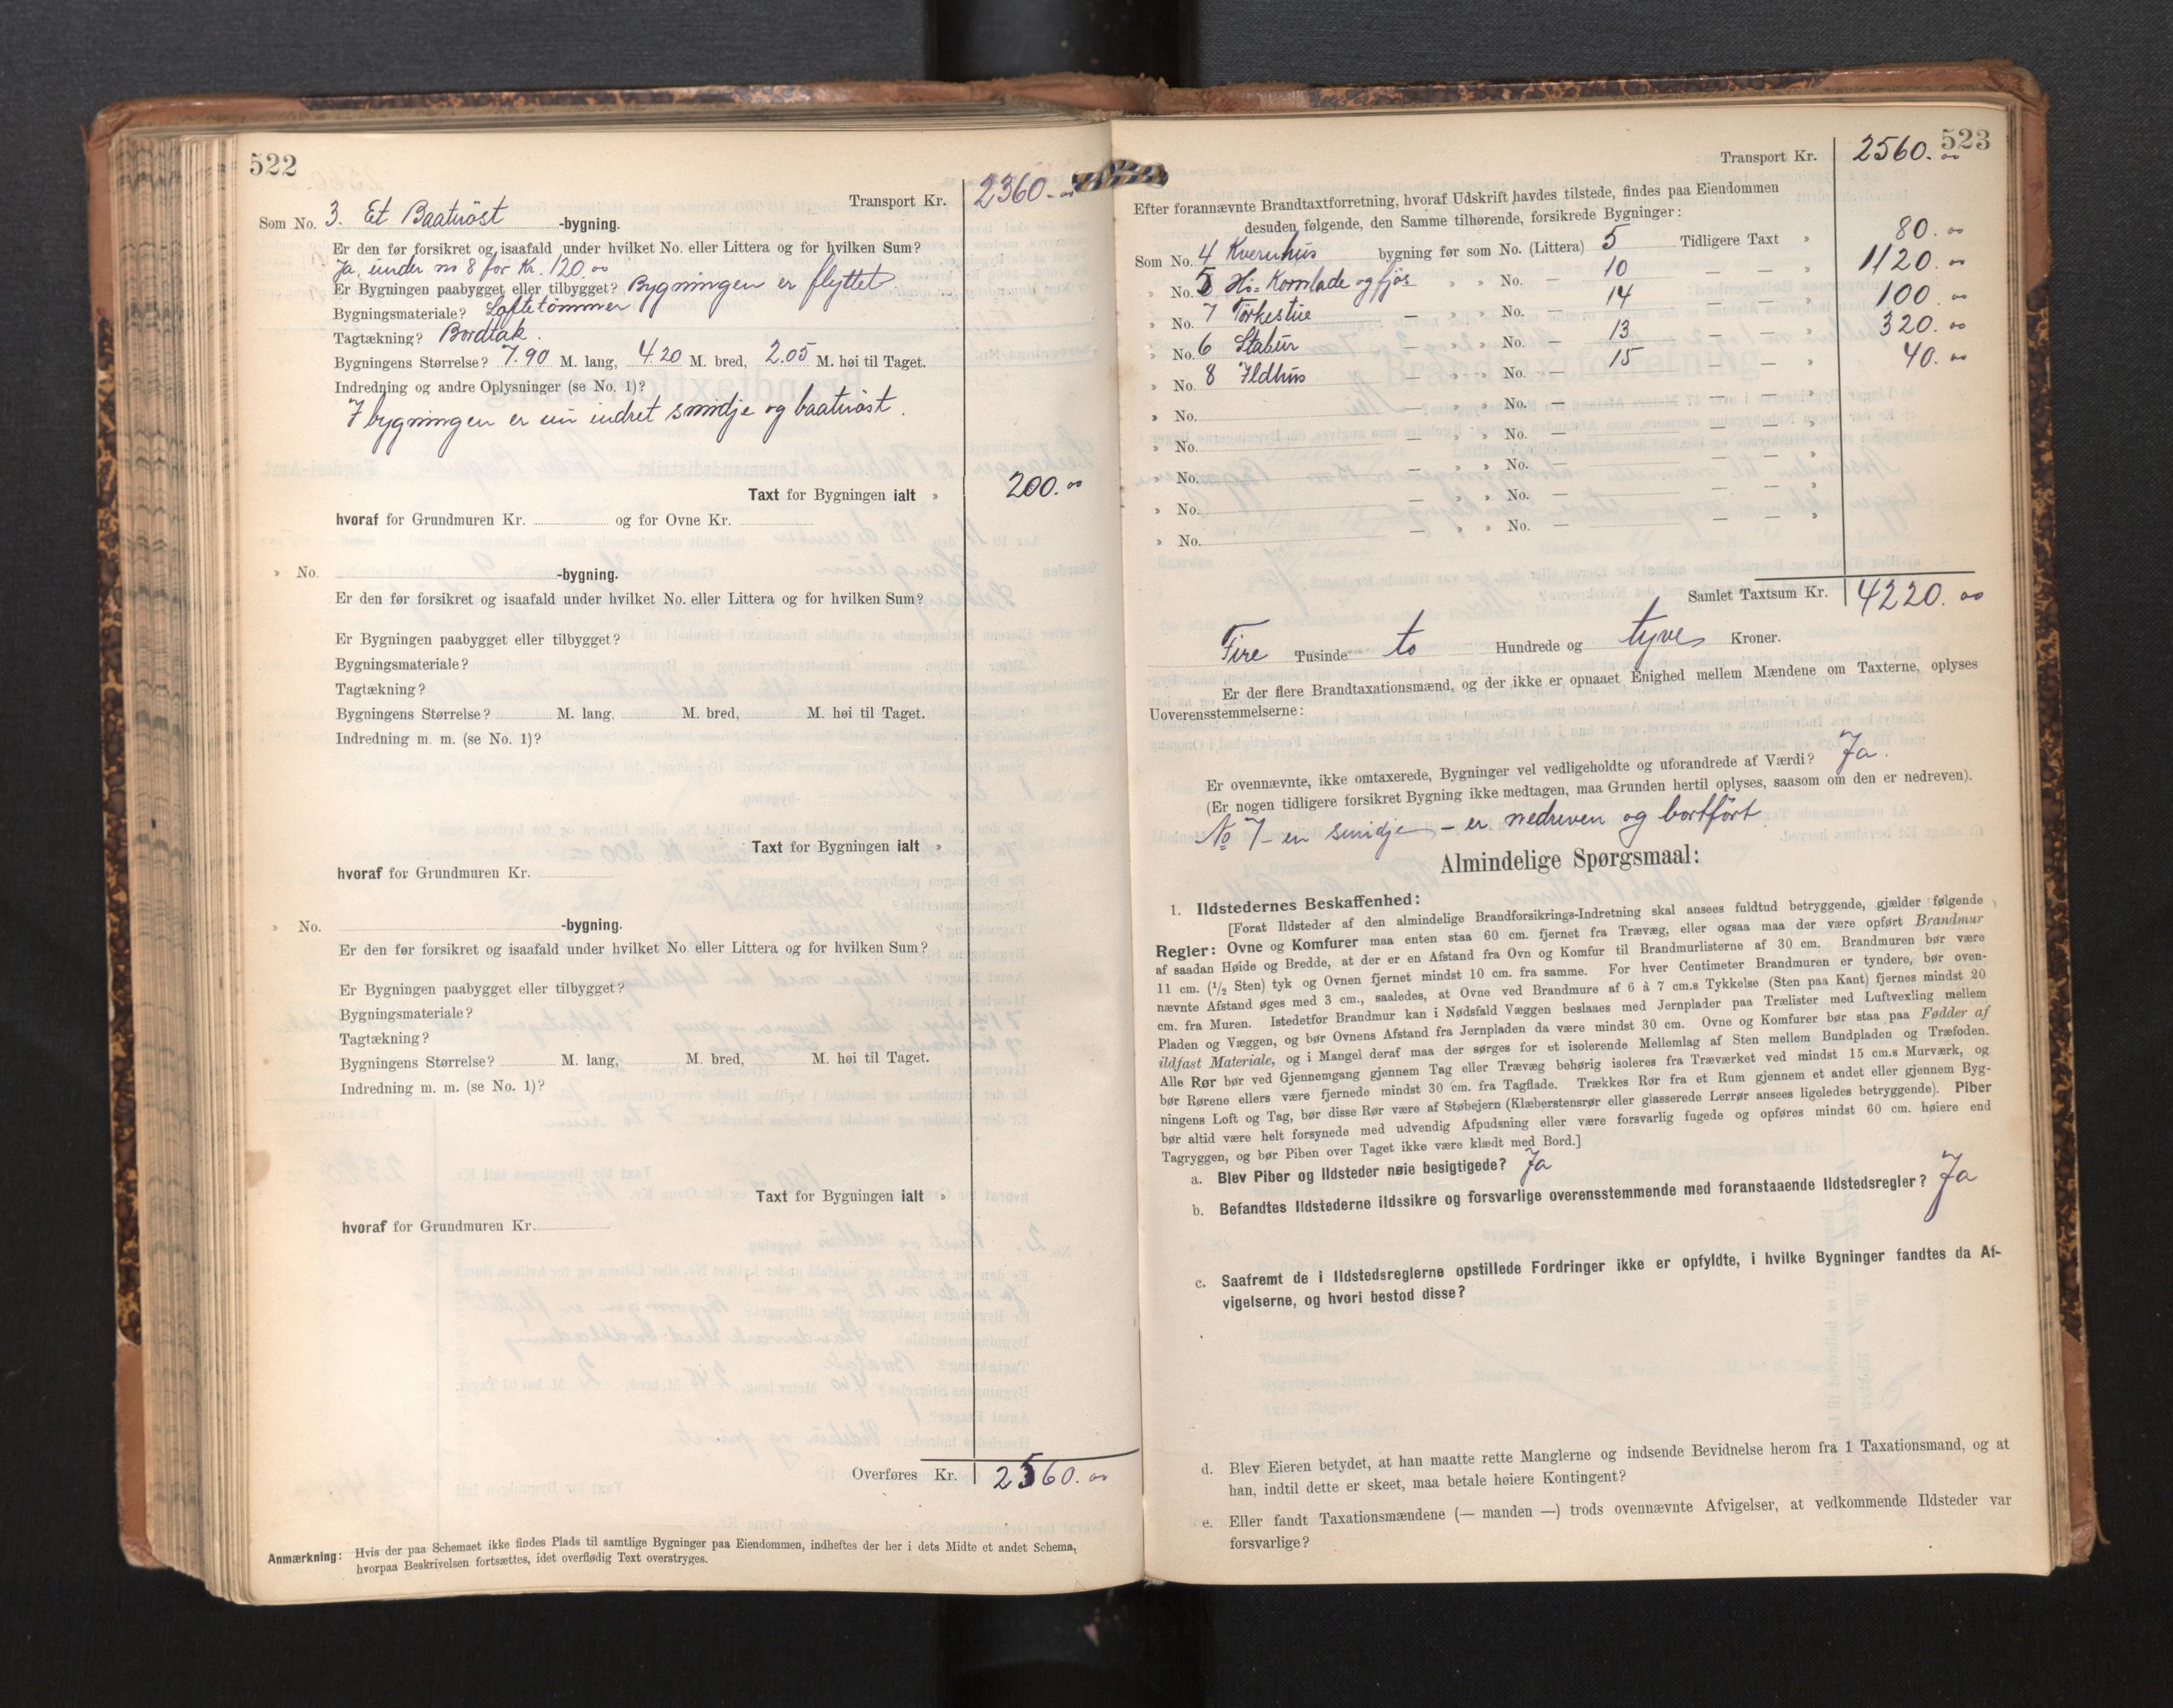 522
Transport Kr. 2360.00
Som No. 3. Et Baatnöst -bygning.
Er den før forsikret og isaafald under hvilket No. eller Littera og for hvilken Sum?
Ja, under no 8 for Kr. 120.00
Er Bygningen paabygget eller tilbygget? Bygningen er flyttet
Bygningsmateriale? Loftetömmer
Tagtækning? Bordtak.
Bygningens Størrelse? 7.90 M. lang, 4.20 M. bred, 2.05 M. høi til Taget.
Indredning og andre Oplysninger (se No. 1)?
I bygningen er nu indret smidje og baatnöst.
Taxt for Bygningen ialt » 200.00
hvoraf for Grundmuren Kr. og for Ovne Kr.
» No. -bygning.
Er den før forsikret og isaafald under hvilket No. eller Littera og for hvilken Sum?
Er Bygningen paabygget eller tilbygget?
Bygningsmateriale?
Tagtækning?
Bygningens Størrelse? M. lang, M. bred, M. høi til Taget.
Indredning m. m. (se No. 1)?
Taxt for Bygningen ialt »
hvoraf for Grundmuren Kr.
» No. -bygning.
Er den før forsikret og isaafald under hvilket No. eller Littera og for hvilken Sum?
Er Bygningen paabygget eller tilbygget?
Bygningsmateriale?
Tagtækning?
Bygningens Størrelse? M. lang, M. bred, M. høi til Taget.
Indredning m. m. (se No. 1)?
Taxt for Bygningen ialt »
hvoraf for Grundmuren Kr.
Overføres Kr. 2560.00
Anmærkning: Hvis der paa Schemaet ikke findes Plads til samtlige Bygninger paa Eiendommen, indheftes der her i dets Midte et andet Schema,
hvorpaa Beskrivelsen fortsættes, idet overflødig Text overstryges.
523
Transport Kr. 2560.00
Efter forannævnte Brandtaxtforretning, hvoraf Udskrift havdes tilstede, findes paa Eiendommen
desuden følgende, den Samme tilhørende, forsikrede Bygninger:
Som No. 4 Kvernhus bygning før som No. (Littera) 5 Tidligere Taxt » 80.00
» No. 5 Hö- Kornlade og fjös » » No. — 10 — — » 1120.00
» No. 7 Törkestue — » » No. — 14 — — » 100.00
» No. 6 Stabur — » » No. — 13 — — » 320.00
» No. 8 Ildhus — » » No. — 15 — — » 40.00
» No. — » » No. — — — »
» No. — » » No. — — — »
» No. — » » No. — — — »
» No. — » » No. — — — »
» No. — » » No. — — — »
Samlet Taxtsum Kr. 4220.00
Fire Tusinde to Hundrede og tyve Kroner.
Er der flere Brandtaxationsmænd, og der ikke er opnaaet Enighed mellem Mændene om Taxterne, oplyses
Uoverensstemmelserne:
Er ovennævnte, ikke omtaxerede, Bygninger vel vedligeholdte og uforandrede af Værdi? Ja.
(Er nogen tidligere forsikret Bygning ikke medtagen, maa Grunden hertil oplyses, saasom om den er nedreven).
No 7 – en smidje – er nedreven og bortfört
Almindelige Spørgsmaal:
1. Ildstedernes Beskaffenhed:
[Forat Ildsteder af den almindelige Brandforsikrings-Indretning skal ansees fuldtud betryggende, gjælder følgende
Regler: Ovne og Komfurer maa enten staa 60 cm. fjernet fra Trævæg, eller ogsaa maa der være opført Brandmur
af saadan Høide og Bredde, at der er en Afstand fra Ovn og Komfur til Brandmurlisterne af 30 cm. Brandmuren bør være
11 cm. (1/2 Sten) tyk og Ovnen fjernet mindst 10 cm. fra samme. For hver Centimeter Brandmuren er tyndere, bør oven-
nævnte Afstand øges med 3 cm., saaledes, at Ovne ved Brandmure af 6 à 7 cm.s Tykkelse (Sten paa Kant) fjernes mindst 20
cm. fra Muren. Istedetfor Brandmur kan i Nødsfald Væggen beslaaes med Jernplader paa Trælister med Luftvexling mellem
Pladen og Væggen, og bør Ovnens Afstand fra Jernpladen da være mindst 30 cm. Ovne og Komfurer bør staa paa Fødder af
ildfast Materiale, og i Mangel deraf maa der sørges for et isolerende Mellemlag af Sten mellem Bundpladen og Træfoden.
Alle Rør bør ved Gjennemgang gjennem Tag eller Trævæg behørig isoleres fra Træværket ved mindst 15 cm.s Murværk, og
bør Rørene ellers være fjernede mindst 30 cm. fra Tagflade. Trækkes Rør fra et Rum gjennem et andet eller gjennem Byg-
ningens Loft og Tag, bør disse Rør være af Støbejern (Klæberstensrør eller glasserede Lerrør ansees ligeledes betryggende). Piber
bør altid være helt forsynede med udvendig Afpudsning eller være forsvarlig fugede og opføres mindst 60 cm. høiere end
Tagryggen, og bør Piben over Taget ikke være klædt med Bord.]
a. Blev Piber og Ildsteder nøie besigtigede? Ja
b. Befandtes Ildstederne ildssikre og forsvarlige overensstemmende med foranstaaende Ildstedsregler? Ja
c. Saafremt de i Ildstedsreglerne opstillede Fordringer ikke er opfyldte, i hvilke Bygninger fandtes da Af-
vigelserne, og hvori bestod disse?
d. Blev Eieren betydet, at han maatte rette Manglerne og indsende Bevidnelse herom fra 1 Taxationsmand, og at
han, indtil dette er skeet, maa betale høiere Kontingent?
e. Eller fandt Taxationsmændene (— manden —) trods ovennævnte Afvigelser, at vedkommende Ildsteder var
forsvarlige?